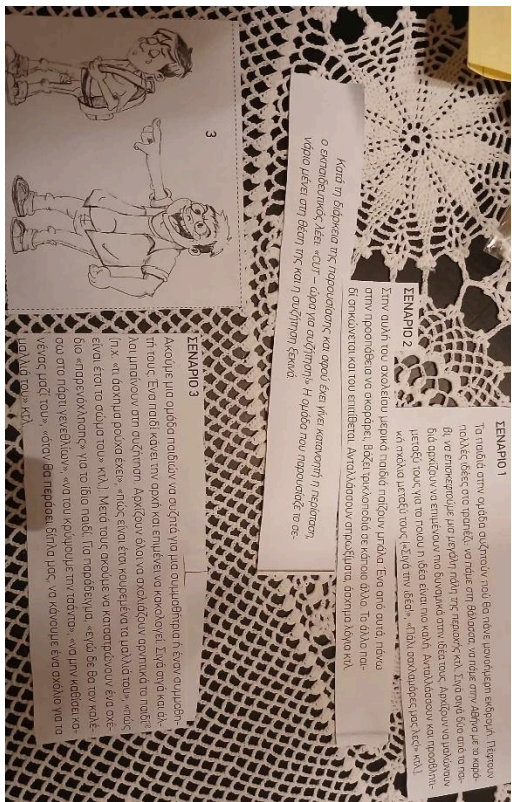 ΣΕΝΑΡΙΟ 1
Τα παιδιά στην ομάδα συζητούν πού θα πάνε μονοήμερη εκδρομή. Πέφτουν
πολλές ιδέες στο τραπέζι, να πάμε στη θάλασσα, να πάμε στην Αθήνα με το καρά-
βι, να επισκεφτούμε μια μεγάλη πόλη της περιοχής κτλ. Σιγά σιγά δύο από τα παι-
διά αρχίζουν να επιμένουν πιο δυναμικά στην ιδέα τους. Αρχίζουν να μαλώνουν
μεταξύ τους για το ποιου η ιδέα είναι πιο καλή. Ανταλλάσσουν και προσβλητι-
κά σχόλια μεταξύ τους («Σιγά την ιδέα!», «Πάλι σαχλαμάρες μας λες!» κτλ.).
ΣΕΝΑΡΙΟ 2
Στην αυλή του σχολείου μερικά παιδιά παίζουν μπάλα. Ένα από αυτά, πάνω
στην προσπάθεια να σκοράρει, βάζει τρικλοποδιά σε κάποιο άλλο. Το άλλο παι-
δί σηκώνεται και του επιτίθεται. Ανταλλάσσουν σπρωξίματα, άσχημα λόγια κτλ.
Κατά τη διάρκεια της παρουσίασης και αφού έχει γίνει κατανοητή η περίσταση,
ο εκπαιδευτικός λέει: «CUT – ώρα για συζήτηση!» Η ομάδα που παρουσίαζε το σε-
νάριο μένει στη θέση της και η συζήτηση ξεκινά.
3
ΣΕΝΑΡΙΟ 3
Ακούμε μια ομάδα παιδιών να συζητά για μια συμμαθήτρια ή έναν συμμαθη-
τή τους. Ένα παιδί κάνει την αρχή και επιμένει να κακολογεί. Σιγά σιγά και άλ-
λοι μπαίνουν στη συζήτηση. Αρχίζουν όλοι να σχολιάζουν αρνητικά το παιδί
(π.χ. «τι άσχημα ρούχα έχει», «πώς είναι έτσι κουρεμένα τα μαλλιά του», «πώς
είναι έτσι το σώμα του» κτλ.). Μετά τους ακούμε να καταστρώνουν ένα σχέ-
διο «παρενόχλησης» για το ίδιο παιδί. Για παράδειγμα, «εγώ δε θα τον καλέ-
σω στο πάρτι γενεθλίων», «να του κρύψουμε την τσάντα», «να μην καθίσει κα-
νένας μαζί του», «όταν θα περάσει δίπλα μας, να κάνουμε ένα σχόλιο για τα
μαλλιά του» κτλ.